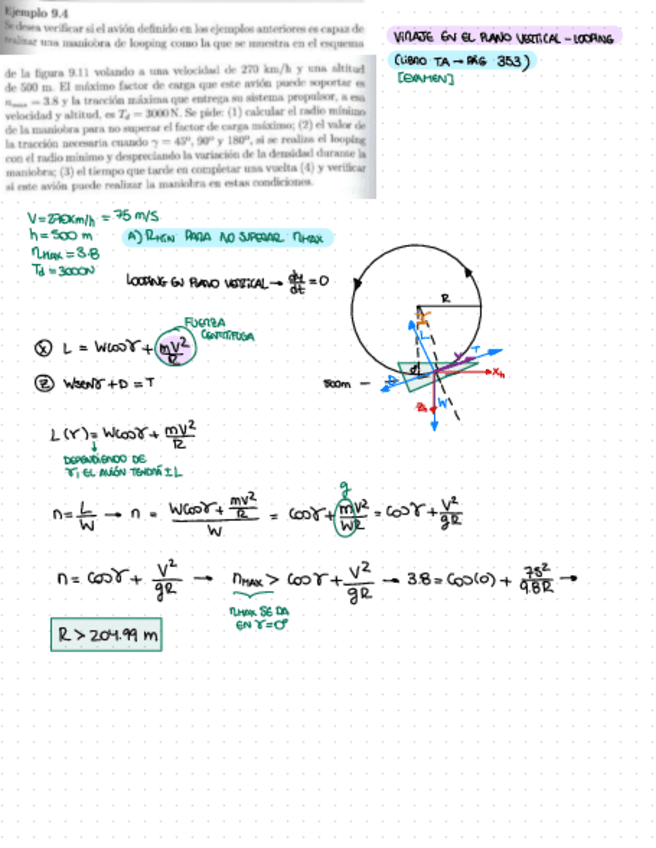 Ejemplo 9.4
Se desea verificar si el avión definido en los ejemplos anteriores es capaz de
realizar una maniobra de looping como la que se muestra en el esquema
de la figura 9.11 volando a una velocidad de 270 km/h y una altitud
de 500 m. El máximo factor de carga que este avión puede soportar es
n_max = 3.8 y la tracción máxima que entrega su sistema propulsor, a esa
velocidad y altitud, es T_d = 3000 N. Se pide: (1) calcular el radio mínimo
de la maniobra para no superar el factor de carga máximo; (2) el valor de
la tracción necesaria cuando γ = 45°, 90° y 180°, si se realiza el looping
con el radio mínimo y despreciando la variación de la densidad durante la
maniobra; (3) el tiempo que tarde en completar una vuelta (4) y verificar
si este avión puede realizar la maniobra en estas condiciones.
VIRAJE EN EL PLANO VERTICAL - LOOPING
(LIBRO TA → PÁG 353)
[EXAMEN]
V = 270 km/h = 75 m/s
h = 500 m
n MAX = 3.8
Td = 3000N
A) RMIN PARA NO SUPERAR nMAX
LOOPING EN PLANO VERTICAL → dψ/dt = 0
FUERZA
CENTRÍFUGA
(X) L = Wcosγ + mV²/R
(Z) Wsenγ + D = T
R
γ
L
d
V
T
500m -
D
Xh
W
L(γ) = Wcosγ + mV²/R
DEPENDIENDO DE
γ, EL AVIÓN TENDRÁ ± L
g
n = L/W → n = (Wcosγ + mV²/R)/W = cosγ + mV²/WR = cosγ + V²/gR
n = cosγ + V²/gR → nMAX > cosγ + V²/gR → 3.8 = cos(0) + 75²/9.8R →
nMAX SE DA
EN γ = 0°
R > 204.99 m